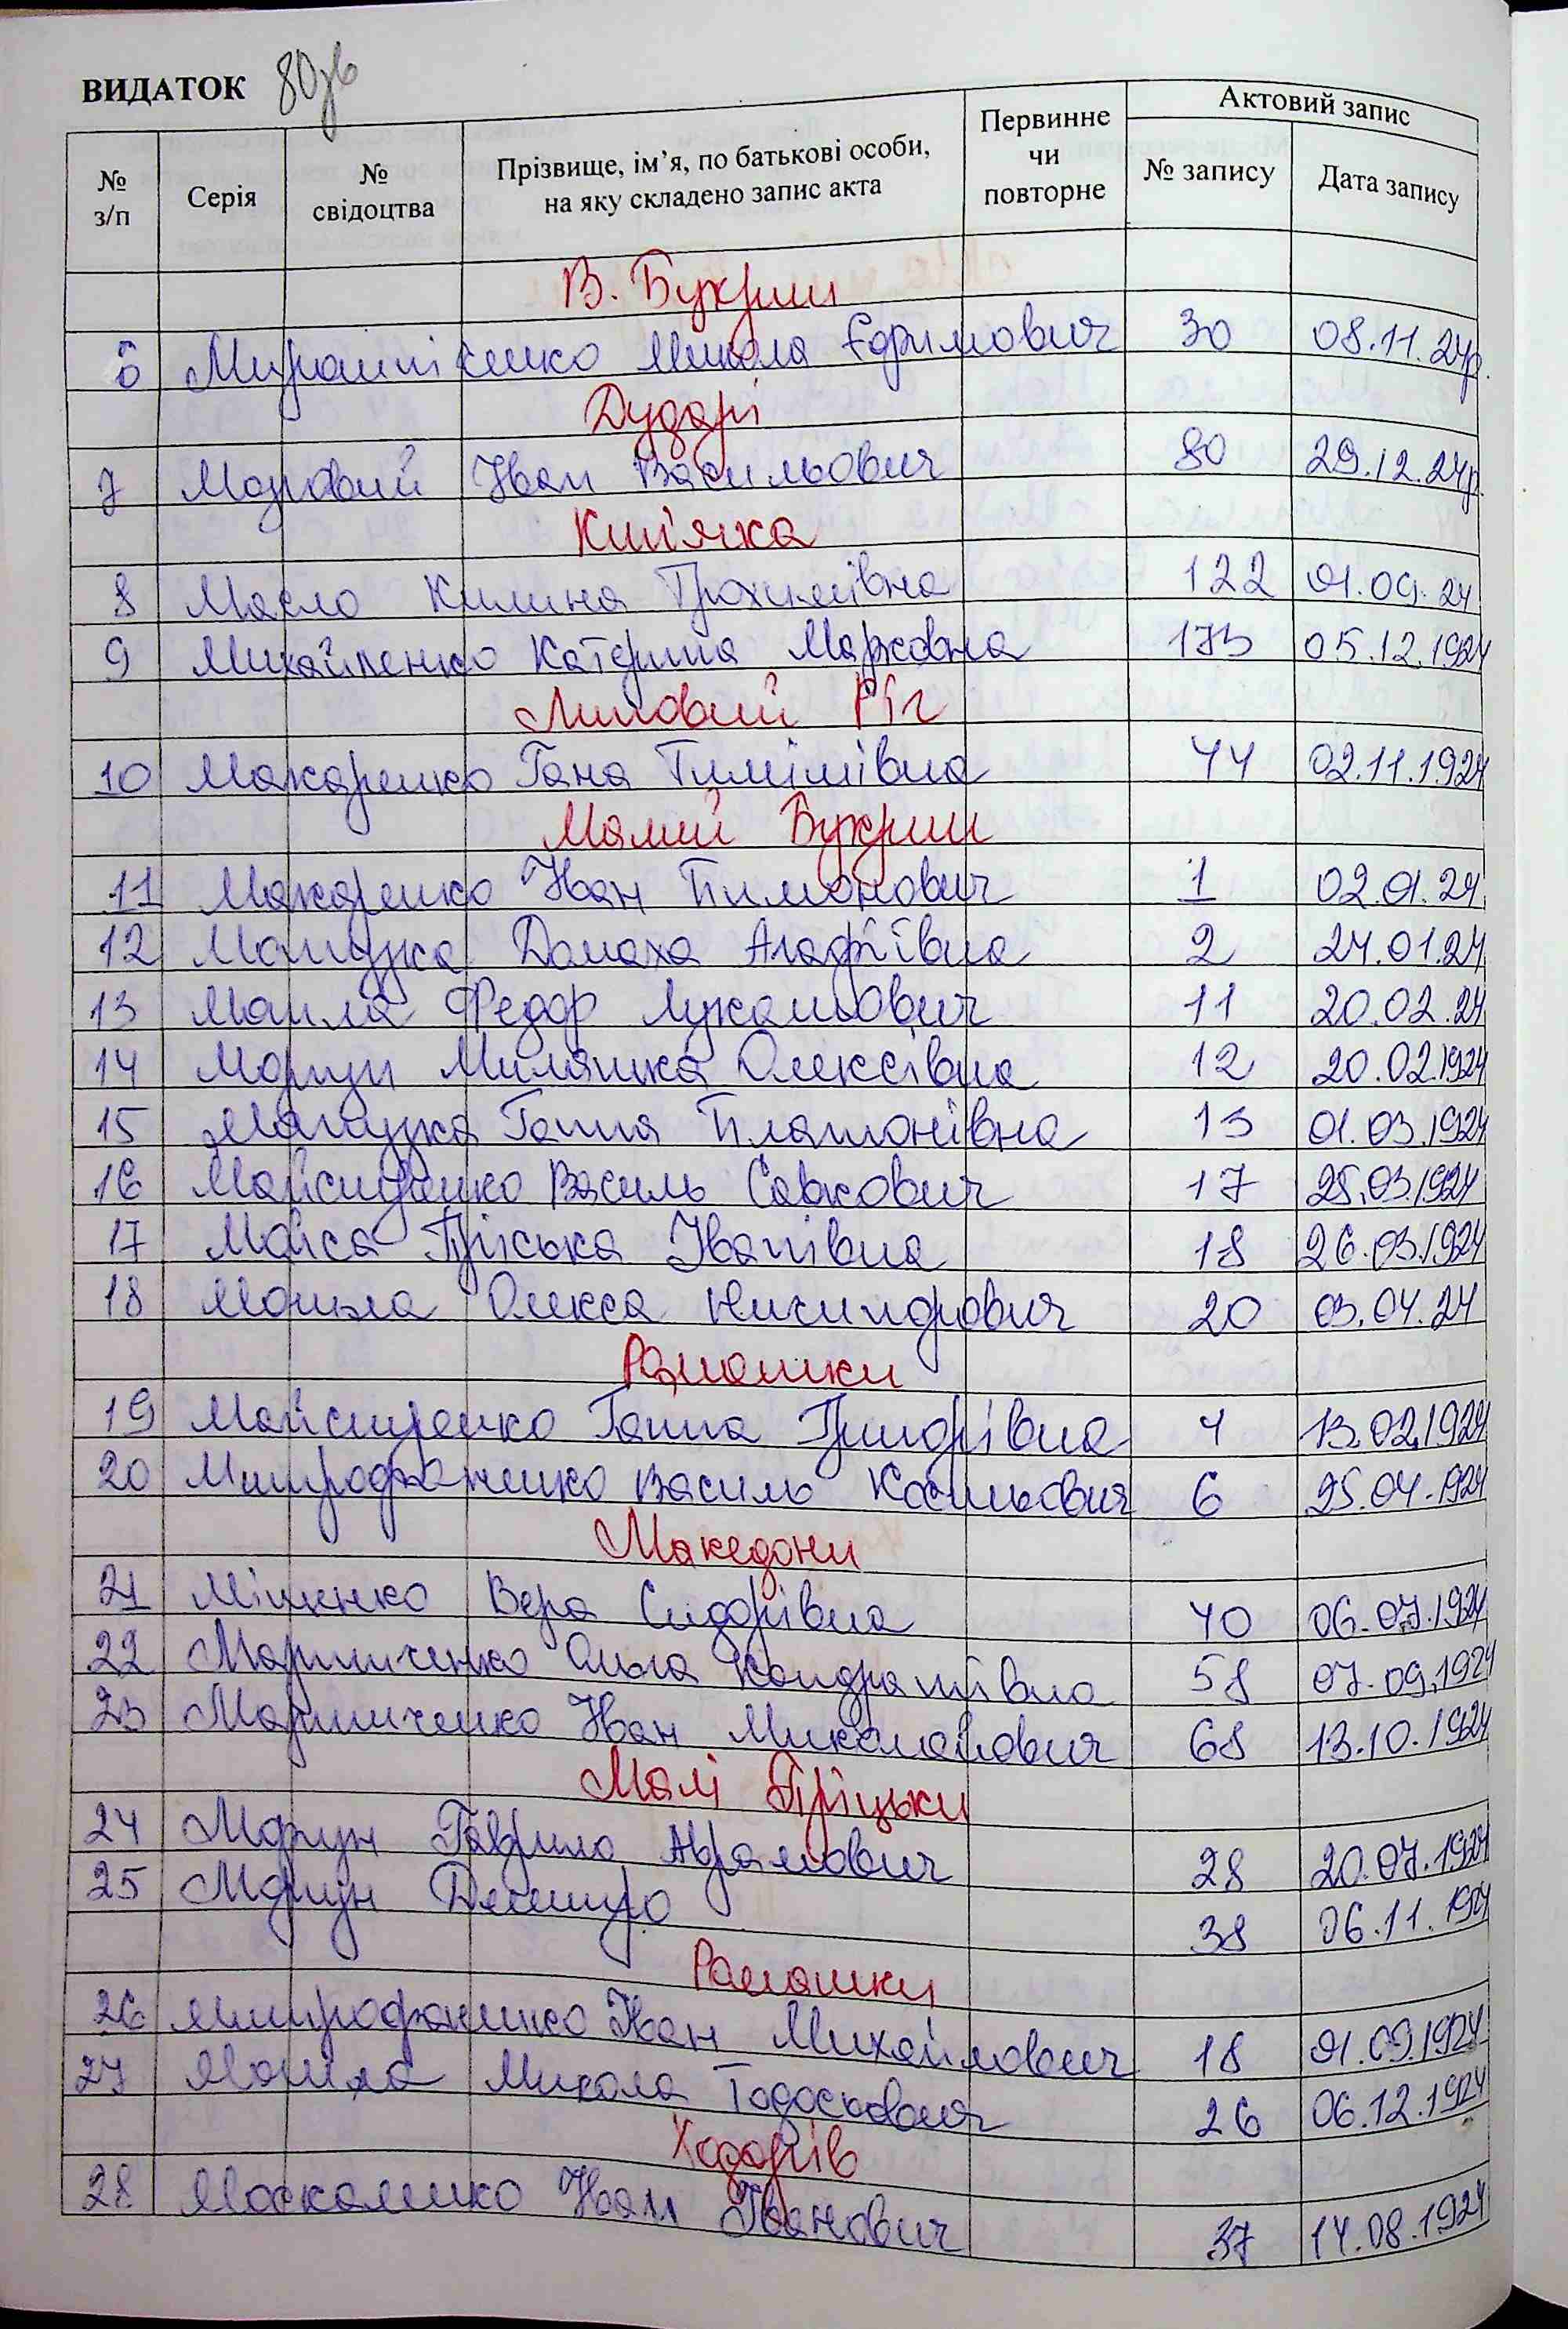 ВИДАТОК 80зв
№ з/п Серія № свідоцтва Прізвище, ім’я, по батькові особи, на яку складено запис акта Первинне чи повторне Актовий запис № запису Дата запису
В. Букрин
6 Микола Єфримович 30 08.11.24р.
Дударі
7 Моровий Іван Васильович 80 29.12.24р.
Кип'ячка
8 Масло Килина Трохимівна 122 01.09.24
9 Михайленко Катерина Марковна 173 05.12.1924
Липовий Ріг
10 Макаренко Гана Тимішівна 44 02.11.1924
Малий Букрин
11 Макаренко Іван Пимонович 1 02.01.24
12 Домаха Агафіївна 2 24.01.24
13 Федор Лукашович 11 20.02.24
14 Моргун Миляшка Олексівна 12 20.02.1924
15 Ганна Платонівна 13 01.03.1924
16 Майстренко Василь Савкович 17 25.03.1924
17 Мойса Пріська Іванівна 18 26.03.1924
18 Могила Олекса Ничипорович 20 03.04.24
Ромашки
19 Майстренко Ганна Григорівна 4 13.02.1924
20 Митрофаненко Василь 6 25.04.1924
Македони
21 Міщенко Вера Сидорівна 40 06.07.1924
22 Мариниченко Ольга Кондратівна 58 07.09.1924
23 Мариниченко Іван Миколайович 68 13.10.1924
Малі Пріцьки
24 Моргун Гаврило Аврамович 28 20.07.1924
25 Моргун Дмитро 38 06.11.1924
Ромашки
26 Митрофаненко Іван Михайлович 18 01.09.1924
27 Могила Микола Тодоскович 26 06.12.1924
Ходорів
28 Москаленко Іван Іванович 37 14.08.1924